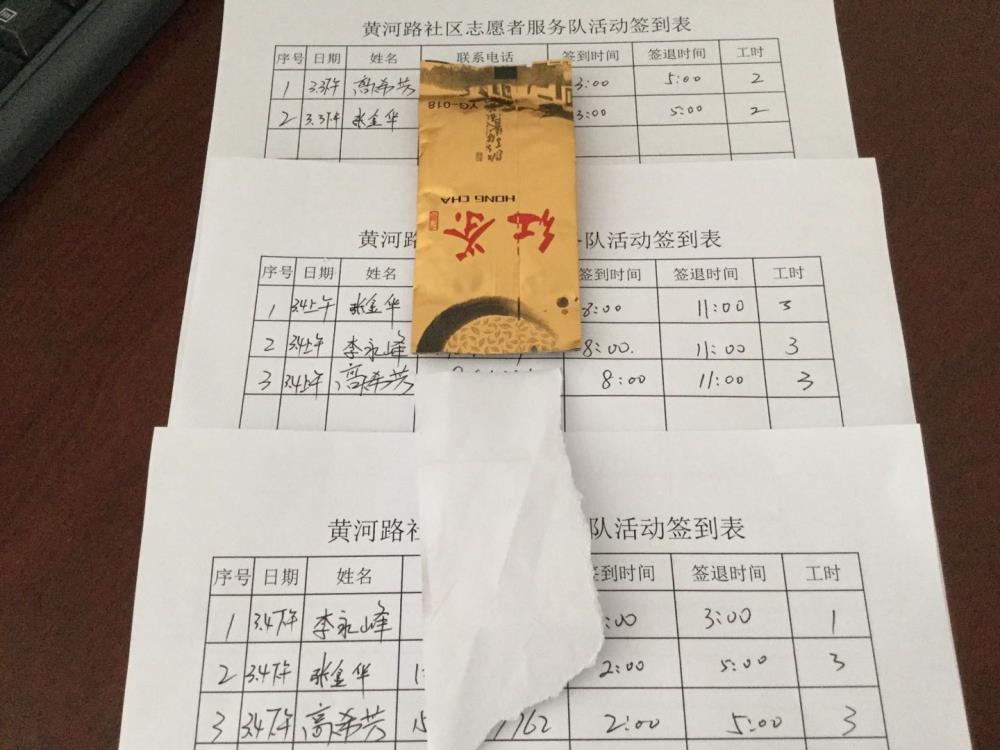 黄河路社区志愿者服务队活动签到表
序号 日期 姓名 联系电话 签到时间 签退时间 工时
1 3.3下午 高希芳 3:00 5:00 2
2 3.3下午 张金华 3:00 5:00 2
YG-018
HONG CHA
红茶
黄河路 务队活动签到表
序号 日期 姓名 签到时间 签退时间 工时
1 3.4上午 张金华 8:00 11:00 3
2 3.4上午 李永峰 8:00. 11:00 3
3 3.4上午 高希芳 8:00 11:00 3
黄河路社 队活动签到表
序号 日期 姓名 签到时间 签退时间 工时
1 3.4下午 李永峰 :00 3:00 1
2 3.4下午 张金华 1 2:00 5:00 3
3 3.4下午 高希芳 15 1162 2:00 5:00 3